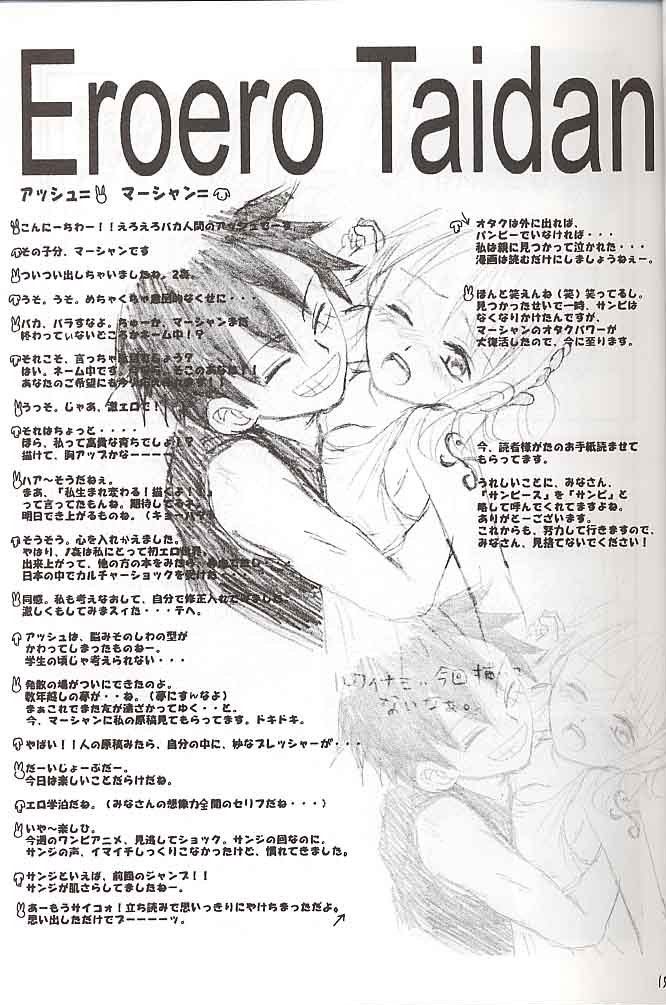 Eroero Taidan
アッシュ= マーシャン=
こんにーちわー！！えろえろバカ人間のアッシュでーす。
その子分、マーシャンです
ついつい出しちゃいましたね。2姦。
うそ。うそ。めちゃくちゃ意図的なくせに・・・
バカ、バラすなよ。ちゅーか、マーシャンまだ
終わってぃないところかネーム中！？
それこそ、言っちゃ
はい。ネーム中です。
あなたのご希望にも
うっそ。じゃあ、激エロで！
それはちょっと・・・・
ほら、私って高貴な育ちでしょ！？
描けて、胸アップかなーーーー
ハア〜そうだねぇ。
まあ、「私生まれ変わる！描くよ！！」
って言ってたもんね。期待してるネ。
明日でき上がるものね。（キョーハク）
そうそう。心を入れかえました。
やはり、1姦は私にとって初エロ世界。
出来上がって、他の方の本をみたら、
日本の中でカルチャーショックを受けた・・・
同感。私も考えなおして、自分で修正入れてきました。
激しくもしてみまスィた・・・テヘ。
アッシュは、脳みそのしわの型が
かわってしまったものねー。
学生の頃じゃ考えられない・・・
発散の場がついにできたのよ。
数年越しの夢が・・ね。（夢にすんなよ）
まぁこれでまた友が遠ざかってゆく・・と。
今、マーシャンに私の原稿見てもらってます。ドキドキ。
やばい！！人の原稿みたら、自分の中に、妙なプレッシャーが・・・
だーいじょーぶだー。
今日は楽しいことだらけだね。
エロ学泊だね。（みなさんの想像力全開のセリフだね・・・）
いや〜楽しひ。
今週のワンピアニメ、見逃してショック。サンジの回なのに。
サンジの声、イマイチしっくりこなかったけど、慣れてきました。
サンジといえば、前回のジャンプ！！
サンジが肌さらしてましたねー。
あーもうサイコォ！立ち読みで思いっきりにやけちまっただよ。
思い出しただけでプーーーーッ。
オタクは外に出れば、
パンピーでいなければ・・・
私は親に見つかって泣かれた・・・
漫画は読むだけにしましょうねぇー。
ほんと笑えんね（笑）笑ってるし。
見つかったせいで一時、サンピは
なくなりかけたんですが、
マーシャンのオタクパワーが
大復活したので、今に至ります。
今、読者様がたのお手紙読ませて
もらってます。
うれしいことに、みなさん、
「サンピース」を「サンピ」と
略して呼んでくれてますよね。
ありがとーございます。
これからも、努力して行きますので、
みなさん、見捨てないでください！
ルフィナミ・・今回描いて
ないなぁ。